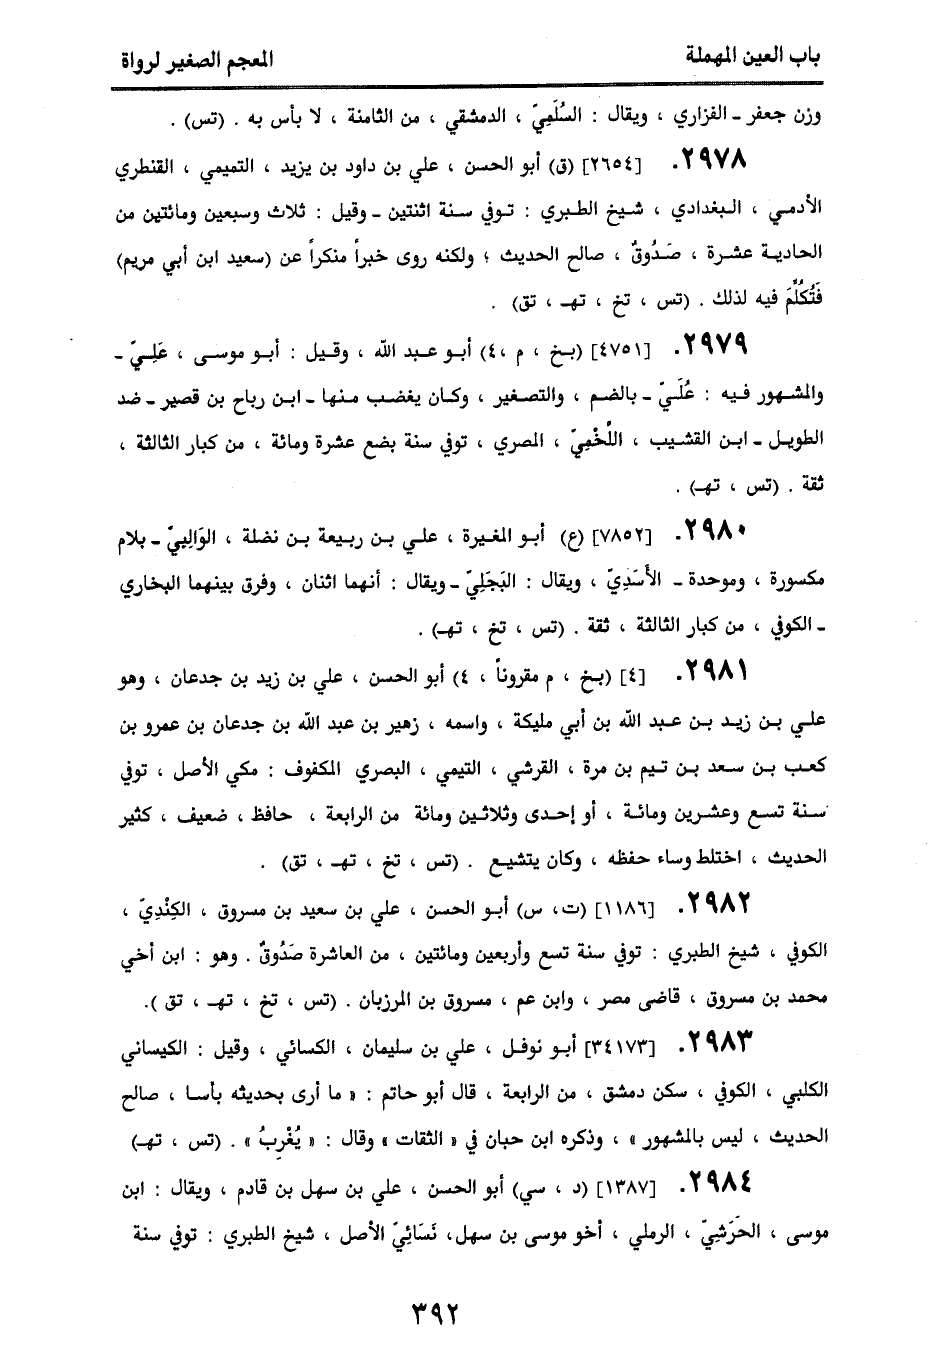 باب العين المهملة
المعجم الصغير لرواة
وزن جعفر ـ الفزاري ، ويقال : السُلَمِيّ ، الدمشقي ، من الثامنة ، لا بأس به . (تس) .
٢٩٧٨. [٢٦٥٤] (ق) أبو الحسن ، علي بن داود بن يزيد ، التميمي ، القنطري
الأدمي ، البغدادي ، شيخ الطبري : توفي سنة اثنتين ـ وقيل : ثلاث وسبعين ومائتين من
الحادية عشرة ، صَدُوقٌ ، صالح الحديث ؛ ولكنه روى خبراً منكراً عن (سعيد ابن أبي مريم)
فَتُكُلِّمَ فيه لذلك . (تس ، تخ ، تهـ ، تق) .
٢٩٧٩. [٤٧٥١] (بخ ، م ،٤) أبو عبد الله ، وقيل : أبو موسى ، عَلِيّ ـ
والمشهور فيه : عُلَيّ ـ بالضم ، والتصغير ، وكان يغضب منها ـ ابن رباح بن قصير ـ ضد
الطويل ـ ابن القشيب ، اللَّخْمِيّ ، المصري ، توفي سنة بضع عشرة ومائة ، من كبار الثالثة ،
ثقة . (تس ، تهـ) .
٢٩٨٠. [٧٨٥٢] (ع) أبو المغيرة ، علي بن ربيعة بن نضلة ، الوَالِبيّ ـ بلام
مكسورة ، وموحدة ـ الأَسَدِيّ ، ويقال : البَجَلِيّ ـ ويقال : أنهما اثنان ، وفرق بينهما البخاري
ـ الكوفي ، من كبار الثالثة ، ثقة . (تس ، تخ ، تهـ) .
٢٩٨١. [٤] (بخ ، م مقروناً ، ٤) أبو الحسن ، علي بن زيد بن جدعان ، وهو
علي بن زيد بن عبد الله بن أبي مليكة ، واسمه ، زهير بن عبد الله بن جدعان بن عمرو بن
كعب بن سعد بن تيم بن مرة ، القرشي ، التيمي ، البصري المكفوف : مكي الأصل ، توفي
سنة تسع وعشرين ومائة ، أو إحدى وثلاثين ومائة من الرابعة ، حافظ ، ضعيف ، كثير
الحديث ، اختلط وساء حفظه ، وكان يتشيع . (تس ، تخ ، تهـ ، تق) .
٢٩٨٢. [١١٨٦] (ت، س) أبو الحسن ، علي بن سعيد بن مسروق ، الكِنْدِيّ ،
الكوفي ، شيخ الطبري : توفي سنة تسع وأربعين ومائتين ، من العاشرة صَدُوقٌ . وهو : ابن أخي
محمد بن مسروق ، قاضى مصر ، وابن عم ، مسروق بن المرزبان . (تس ، تخ ، تهـ ، تق ).
٢٩٨٣. [٣٤١٧٣] أبو نوفل ، علي بن سليمان ، الكسائي ، وقيل : الكيساني
الكلبي ، الكوفي ، سكن دمشق ، من الرابعة ، قال أبو حاتم : « ما أرى بحديثه بأسا ، صالح
الحديث ، ليس بالمشهور » ، وذكره ابن حبان في « الثقات » وقال : « يُغْرِبُ » . (تس ، تهـ)
٢٩٨٤. [١٣٨٧] (د ، سي) أبو الحسن ، علي بن سهل بن قادم ، ويقال : ابن
موسى ، الحَرَشِيّ ، الرملي ، أخو موسى بن سهل، نَسَائِيّ الأصل ، شيخ الطبري : توفي سنة
٣٩٢